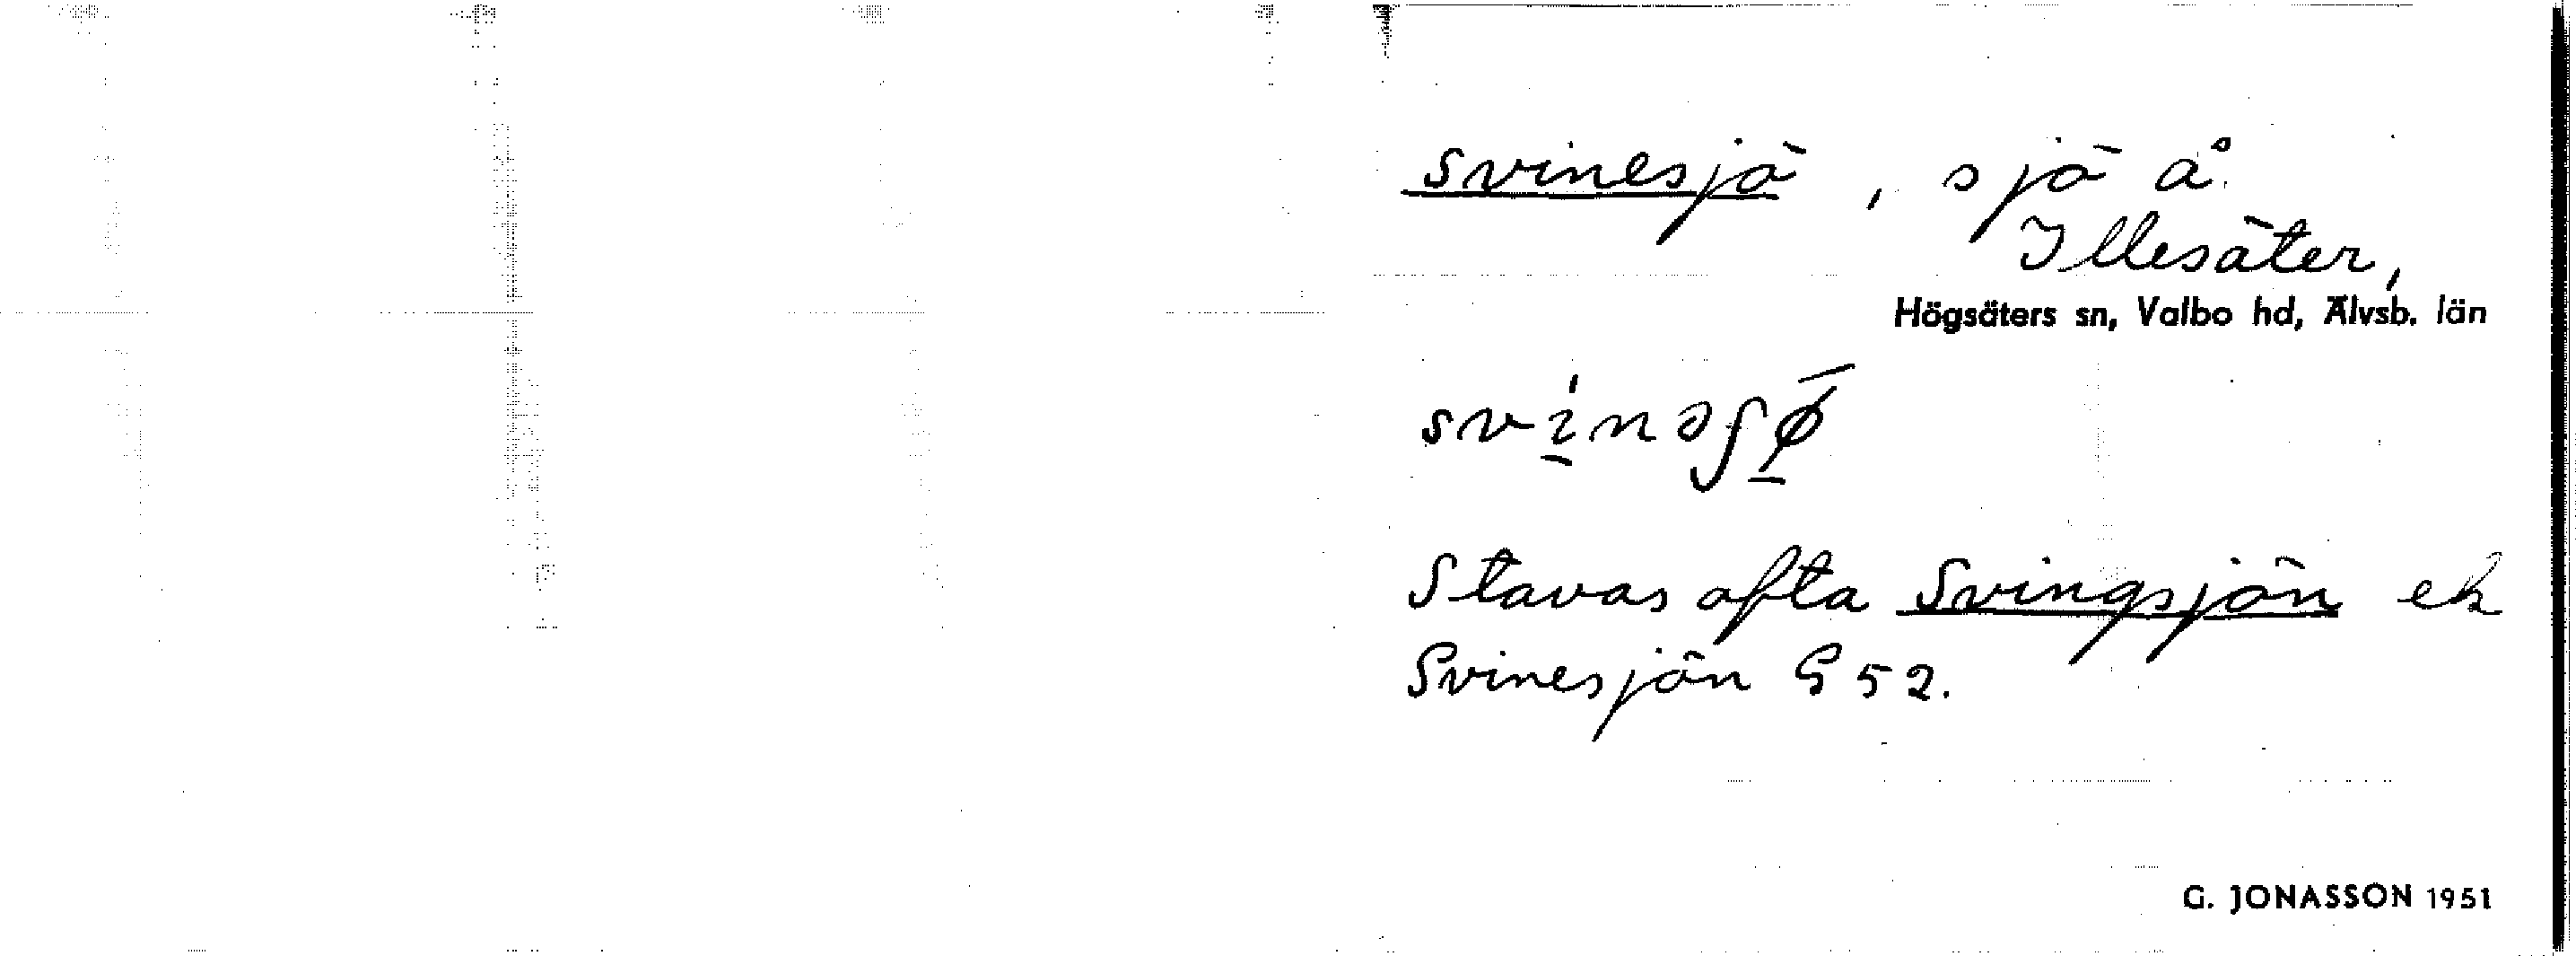 svinesjö, sjö å
Illesäter,
Högsäters sn, Valbo hd, Älvsb. län
Stavas ofta Svingsjön ek
Svinesjön G 52.
G. JONASSON 1951